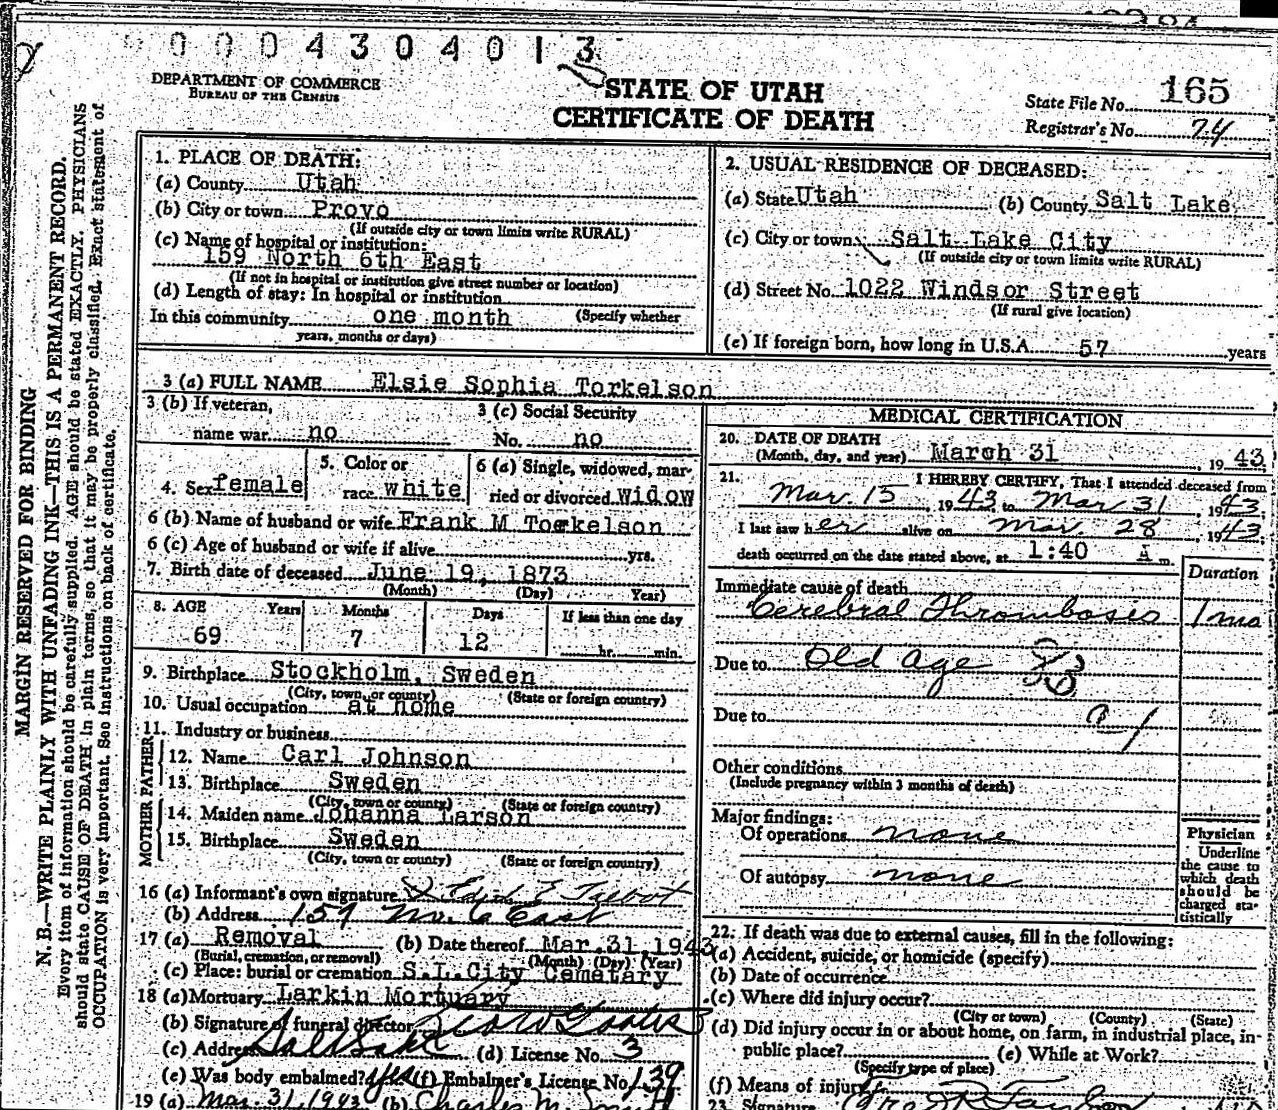 0 0 0 4 3 0 4 0 1 3
DEPARTMENT OF COMMERCE
BUREAU OF THE CENSUS
STATE OF UTAH
CERTIFICATE OF DEATH
State File No. 165
Registrar's No. 74
MARGIN RESERVED FOR BINDING
N. B.—WRITE PLAINLY WITH UNFADING INK—THIS IS A PERMANENT RECORD.
Every item of information should be carefully supplied. AGE should be stated EXACTLY. PHYSICIANS
should state CAUSE OF DEATH in plain terms, so that it may be properly classified. Exact statement of
OCCUPATION is very important. See instructions on back of certificate.
1. PLACE OF DEATH:
(a) County Utah
(b) City or town Provo
(If outside city or town limits write RURAL)
(c) Name of hospital or institution:
159 North 6th East
(If not in hospital or institution give street number or location)
(d) Length of stay: In hospital or institution
In this community one month (Specify whether
years, months or days)
2. USUAL RESIDENCE OF DECEASED:
(a) State Utah (b) County Salt Lake
(c) City or town Salt Lake City
(If outside city or town limits write RURAL)
(d) Street No. 1022 Windsor Street
(If rural give location)
(e) If foreign born, how long in U.S.A. 57 years
3 (a) FULL NAME Elsie Sophia Torkelson
3 (b) If veteran,
name war no
3 (c) Social Security
No. no
4. Sex female
5. Color or
race white
6 (a) Single, widowed, mar-
ried or divorced widow
6 (b) Name of husband or wife Frank M Torkelson
6 (c) Age of husband or wife if alive yrs.
7. Birth date of deceased June 19, 1873
(Month) (Day) Year)
8. AGE Years Months Days If less than one day
69 7 12 hr. min.
9. Birthplace Stockholm, Sweden
(City, town, or county) (State or foreign country)
10. Usual occupation at home
11. Industry or business
FATHER
12. Name Carl Johnson
13. Birthplace Sweden
(City, town or county) (State or foreign country)
MOTHER
14. Maiden name Johanna Larson
15. Birthplace Sweden
(City, town or county) (State or foreign country)
16 (a) Informant's own signature Talbot
(b) Address 159 No. 6 East
17 (a) Removal (b) Date thereof Mar. 31 1943
(Burial, cremation, or removal) (Month) (Day) (Year)
(c) Place: burial or cremation S.L.City Cemetary
18 (a) Mortuary Larkin Mortuary
(b) Signature of funeral director
(c) Address Salt Lake (d) License No. 3
(e) Was body embalmed? yes (f) Embalmer's License No. 139
19 (a) Mar. 31, 1943 (b) Charles M. Smith
MEDICAL CERTIFICATION
20. DATE OF DEATH
(Month, day, and year) March 31, 1943.
21. I HEREBY CERTIFY, That I attended deceased from
Mar. 15, 1943 to Mar 31, 1943.
I last saw her alive on Mar. 28, 1943.
death occurred on the date stated above, at 1:40 A m.
Duration
Immediate cause of death
Cerebral Thrombosis 1 mo
Due to Old age 83
Due to
Other conditions
(Include pregnancy within 3 months of death)
Major findings:
Of operations none
Of autopsy none
Physician
Underline
the cause to
which death
should be
charged sta-
tistically
22. If death was due to external causes, fill in the following:
(a) Accident, suicide, or homicide (specify)
(b) Date of occurrence
(c) Where did injury occur?
(City or town) (County) (State)
(d) Did injury occur in or about home, on farm, in industrial place, in-
public place? (e) While at Work?
(Specify type of place)
(f) Means of injury
23. Signature